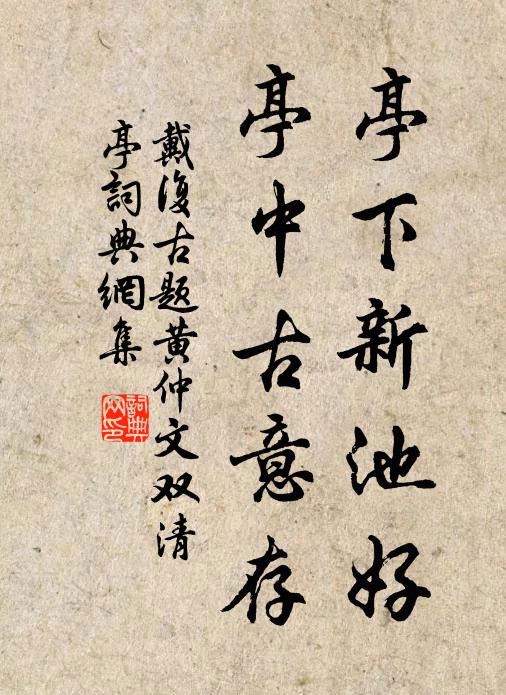 亭下新池好
亭中古意存
戴復古题黄仲文双清
亭詞典網集
詞典网印